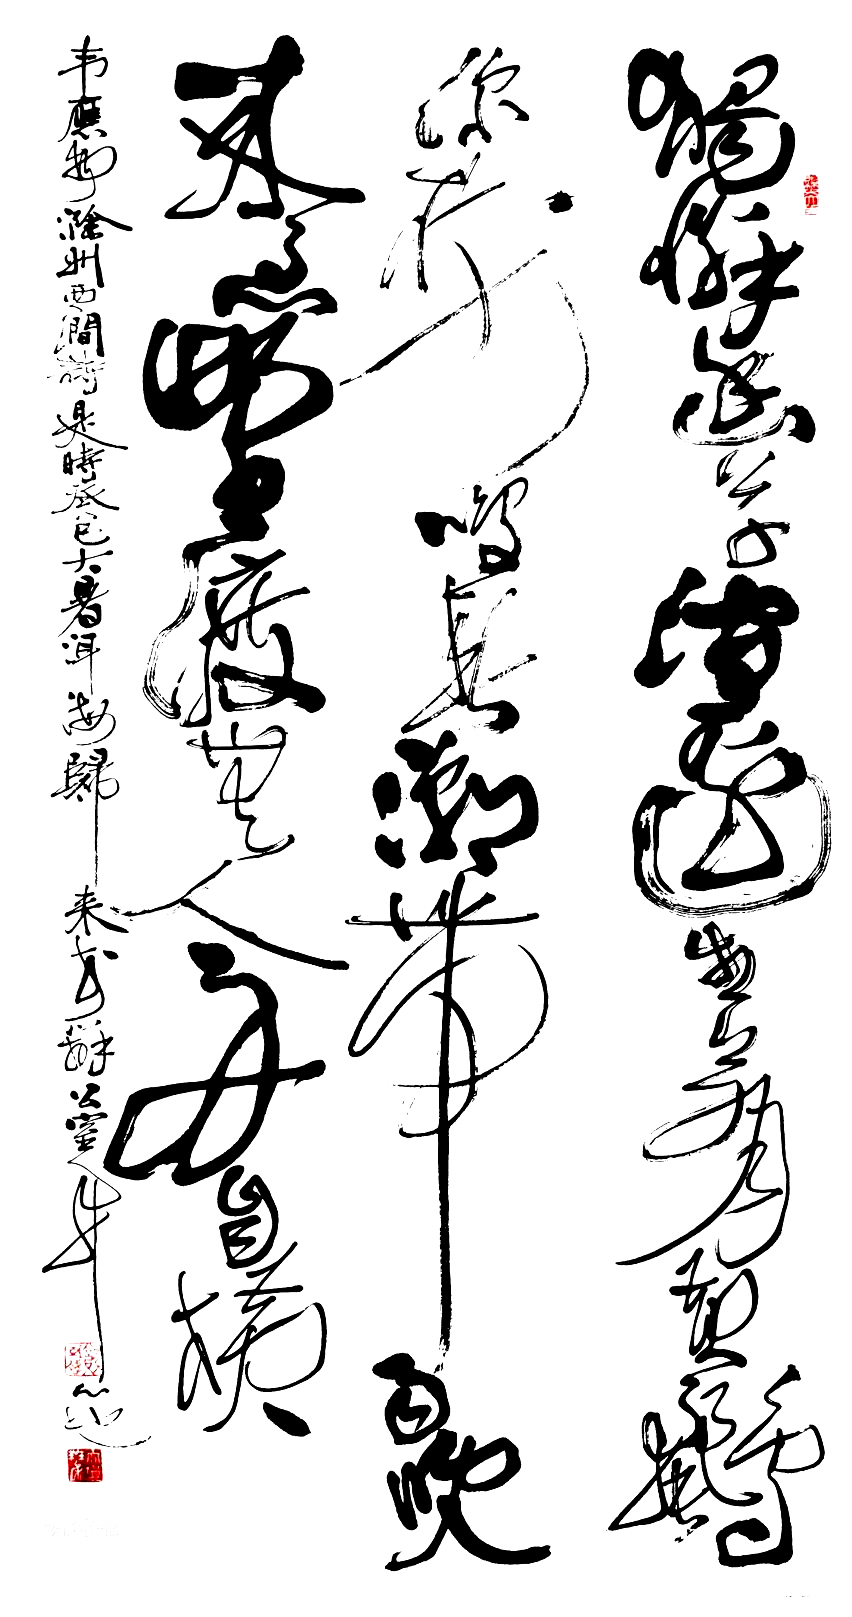 獨憐幽草澗邊生上有黃鸝
深樹鳴春潮帶雨晚
來急野渡無人舟自橫
韦應物滁州西澗詩是時癸巳大暑洱海歸来於